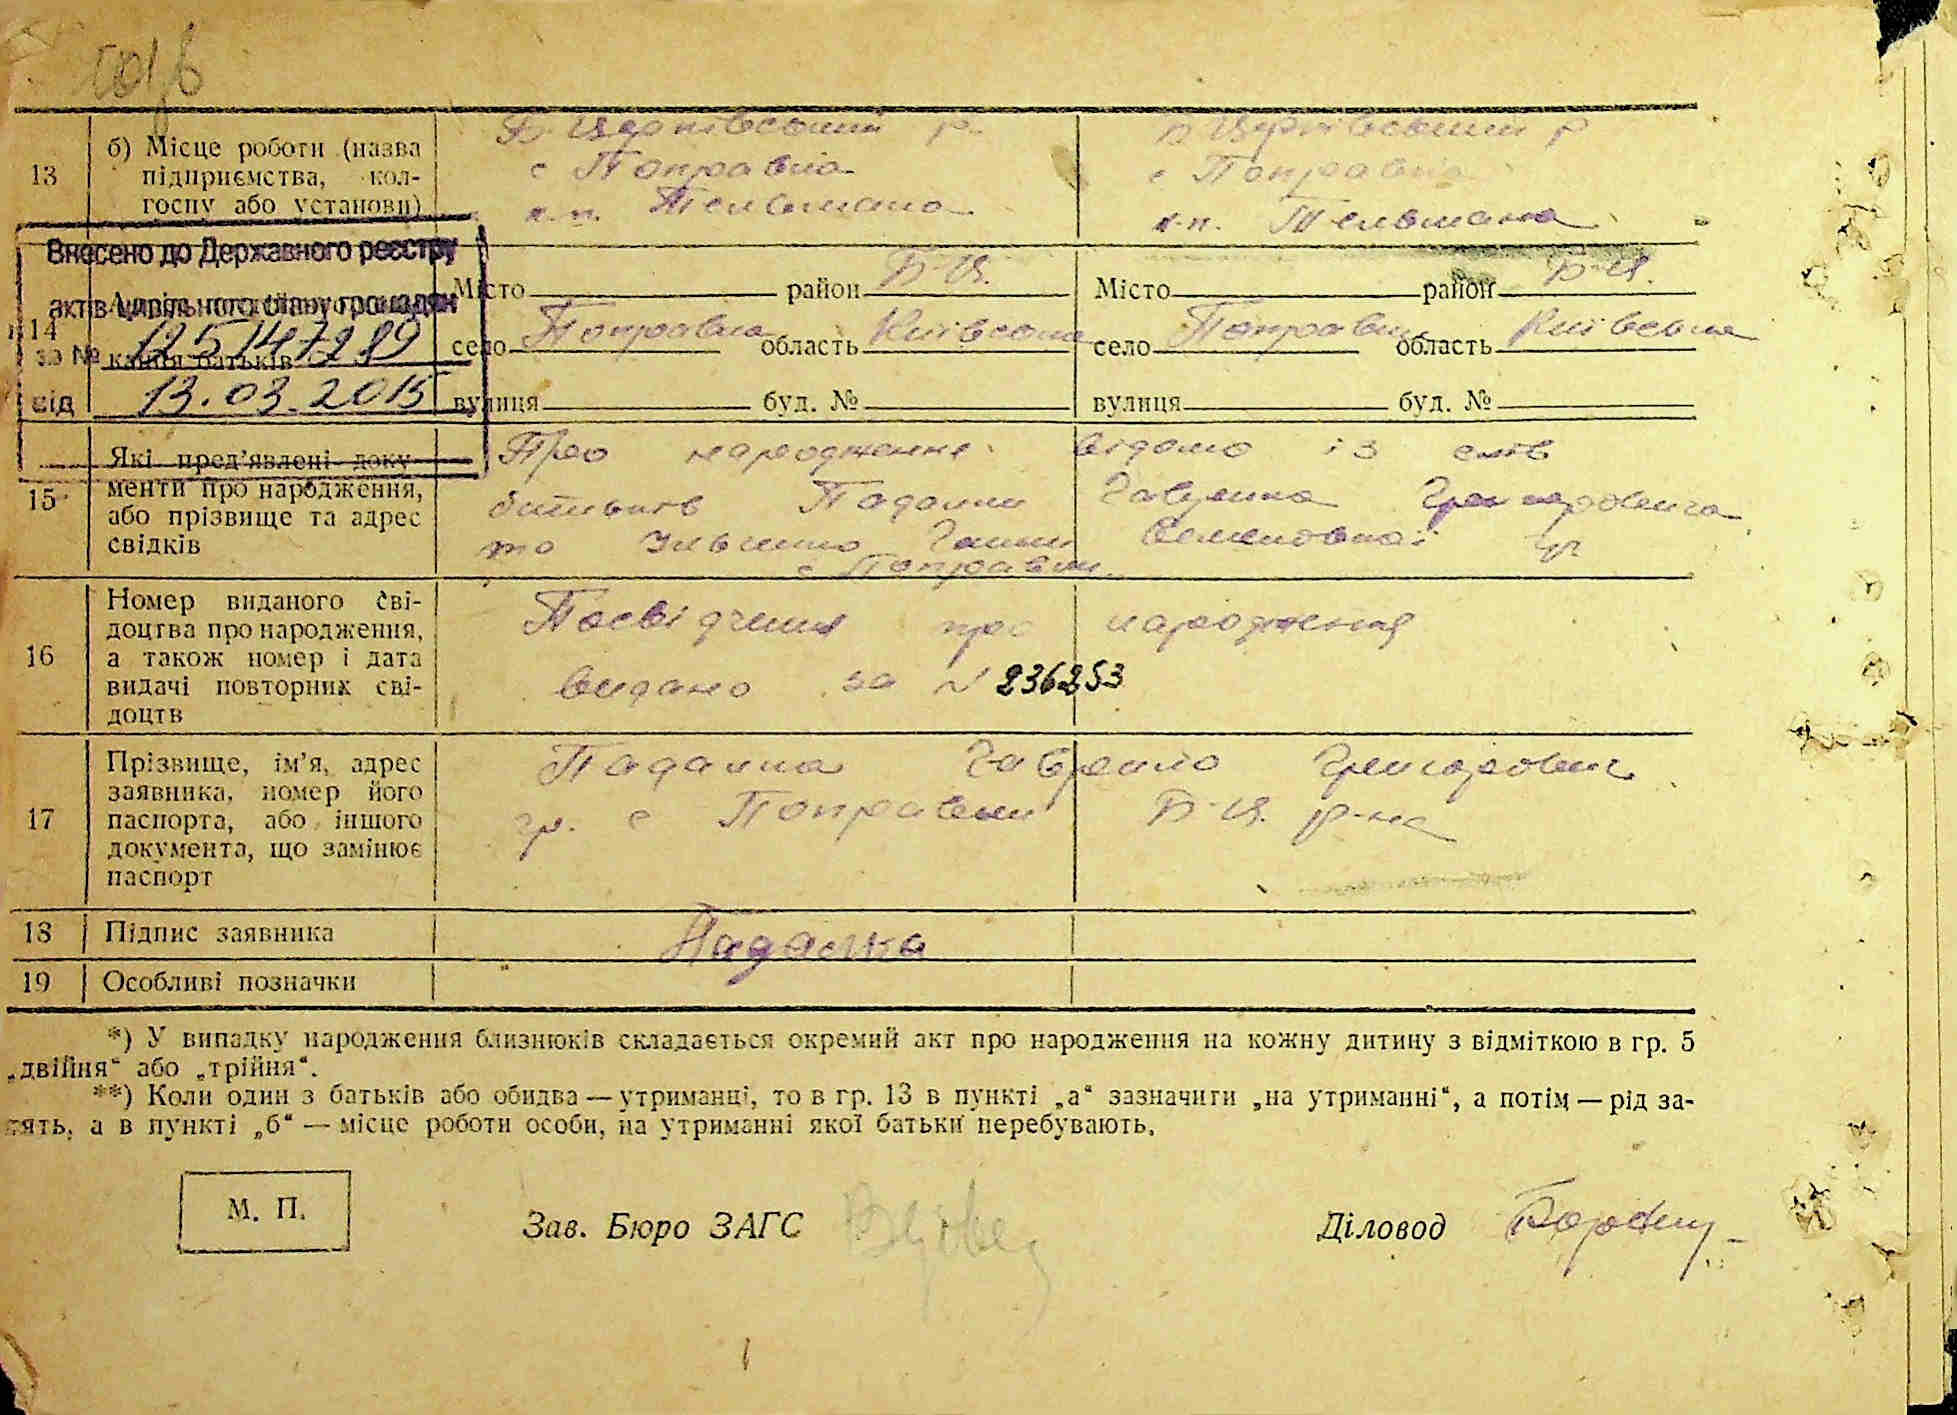 13
б) Місце роботи (назва
підприємства, кол-
госпу або установи)
Б Церківський р.
с Поправка
к.п. Тельмана
Б Церківський р
с Поправка
к.п. Тельмана
Внесено до Державного реєстру
актів цивільного стану громадян
за № 125147289
від 13.03.2015
14
кання батьків
Місто район Б-Ц.
село Поправка область Київська
вулиця буд. №
Місто район Б-Ц.
село Поправка область Київська
вулиця буд. №
15
Які пред'явлені доку-
менти про народження,
або прізвище та адрес
свідків
Про народження відомо із слів
батьків Падалки Гаврила Григоровича
та Ганни Семеновна гр
с Поправки
16
Номер виданого сві-
доцтва про народження,
а також номер і дата
видачі повторних сві-
доцтв
Посвідчення про народження
видано за № 236253
17
Прізвище, ім'я, адрес
заявника, номер його
паспорта, або іншого
документа, що замінює
паспорт
Падалка Гаврило Григорович
гр. с Поправки Б-Ц. р-на
18
Підпис заявника
Падалка
19
Особливі позначки
*) У випадку народження близнюків складається окремий акт про народження на кожну дитину з відміткою в гр. 5
„двійня“ або „трійня“.
**) Коли один з батьків або обидва — утриманці, то в гр. 13 в пункті „а“ зазначити „на утриманні“, а потім — рід за-
нять, а в пункті „б“ — місце роботи особи, на утриманні якої батьки перебувають.
М. П.
Зав. Бюро ЗАГС
Діловод